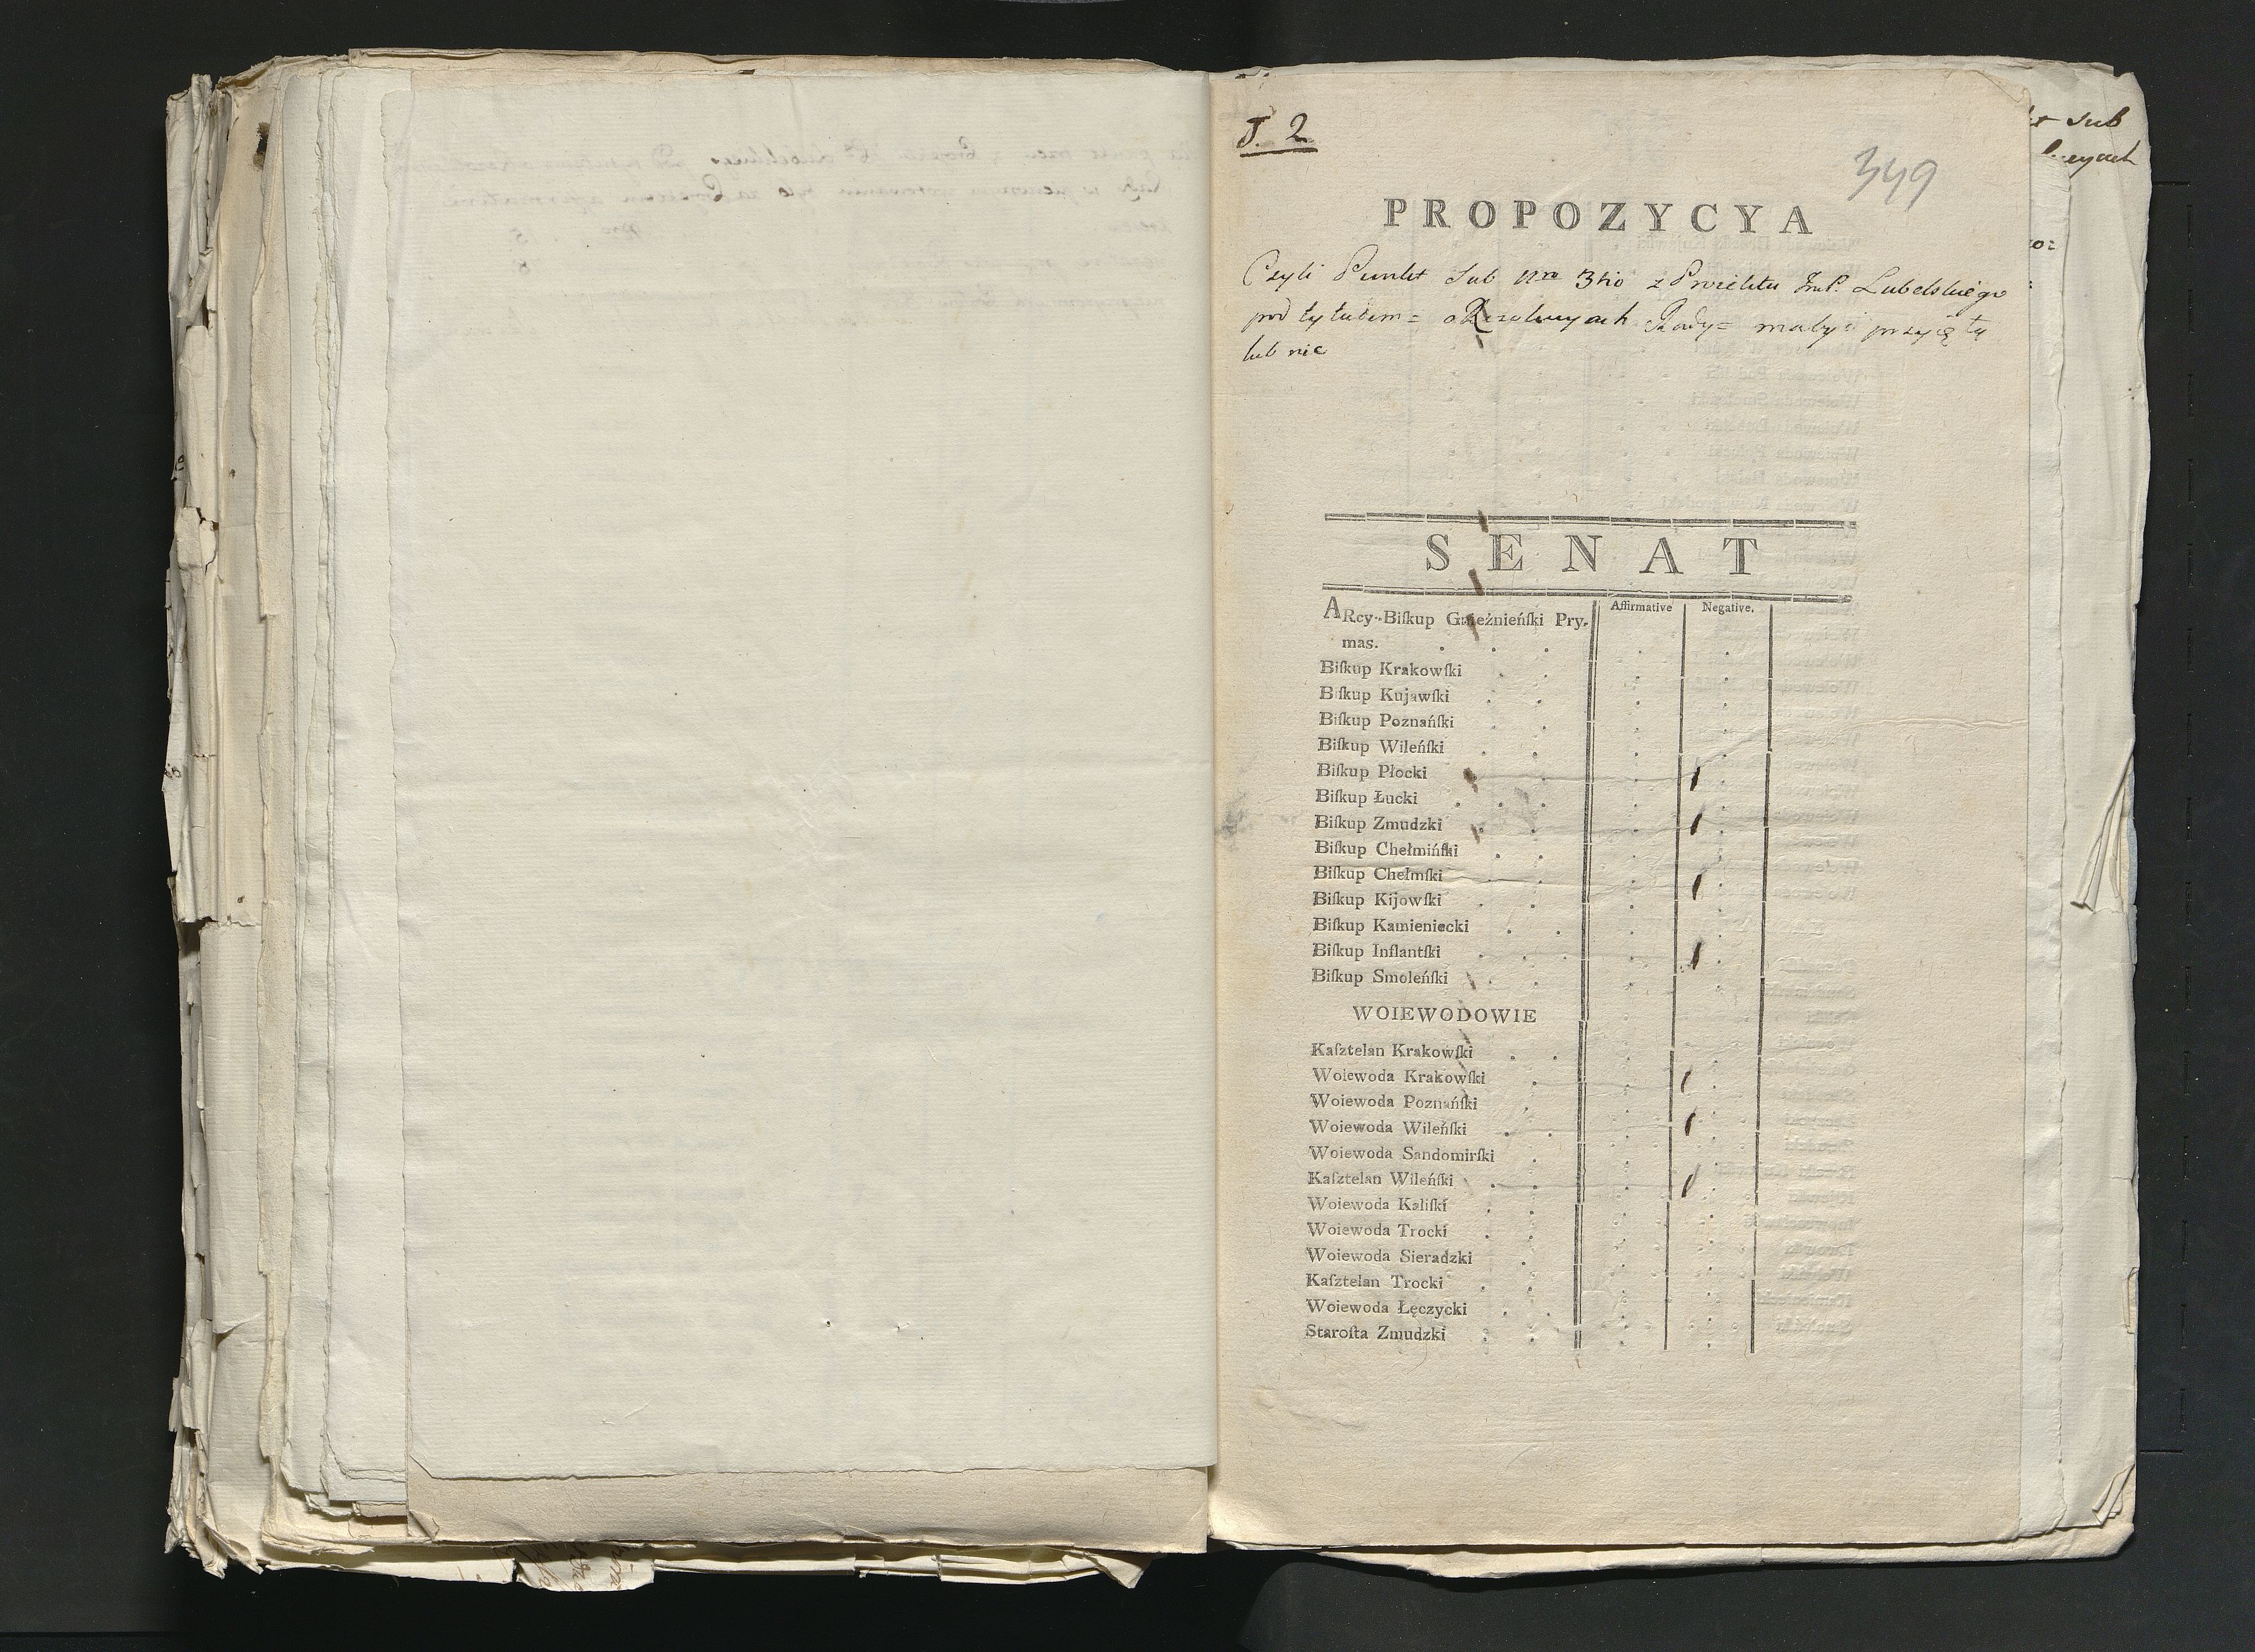 J. 2
349
PROPOZYCYA
Czyli Punkt Sub Nro 3tio z Proiektu JmP. Lubelskiego
pod tytułem = o Rezolucyach Rady = ma byc przyięty
lub nie
SENAT
Affirmative Negative.
ARcy-Biſkup Gnieźnieńſki Pry-
mas.
Biſkup Krakowſki
Biſkup Kujawſki
Biſkup Poznańſki
Biſkup Wileńſki
Biſkup Płocki
Biſkup Łucki
Biſkup Zmudzki
Biſkup Chełmińſki
Biſkup Chełmſki
Biſkup Kijowſki
Biſkup Kamieniecki
Biſkup Inflantſki
Biſkup Smoleńſki
WOIEWODOWIE
Kaſztelan Krakowſki
Woiewoda Krakowſki
Woiewoda Poznańſki
Woiewoda Wileńſki
Woiewoda Sandomirſki
Kaſztelan Wileńſki
Woiewoda Kaliſki
Woiewoda Trocki
Woiewoda Sieradzki
Kaſztelan Trocki
Woiewoda Łęczycki
Staroſta Zmudzki
sub